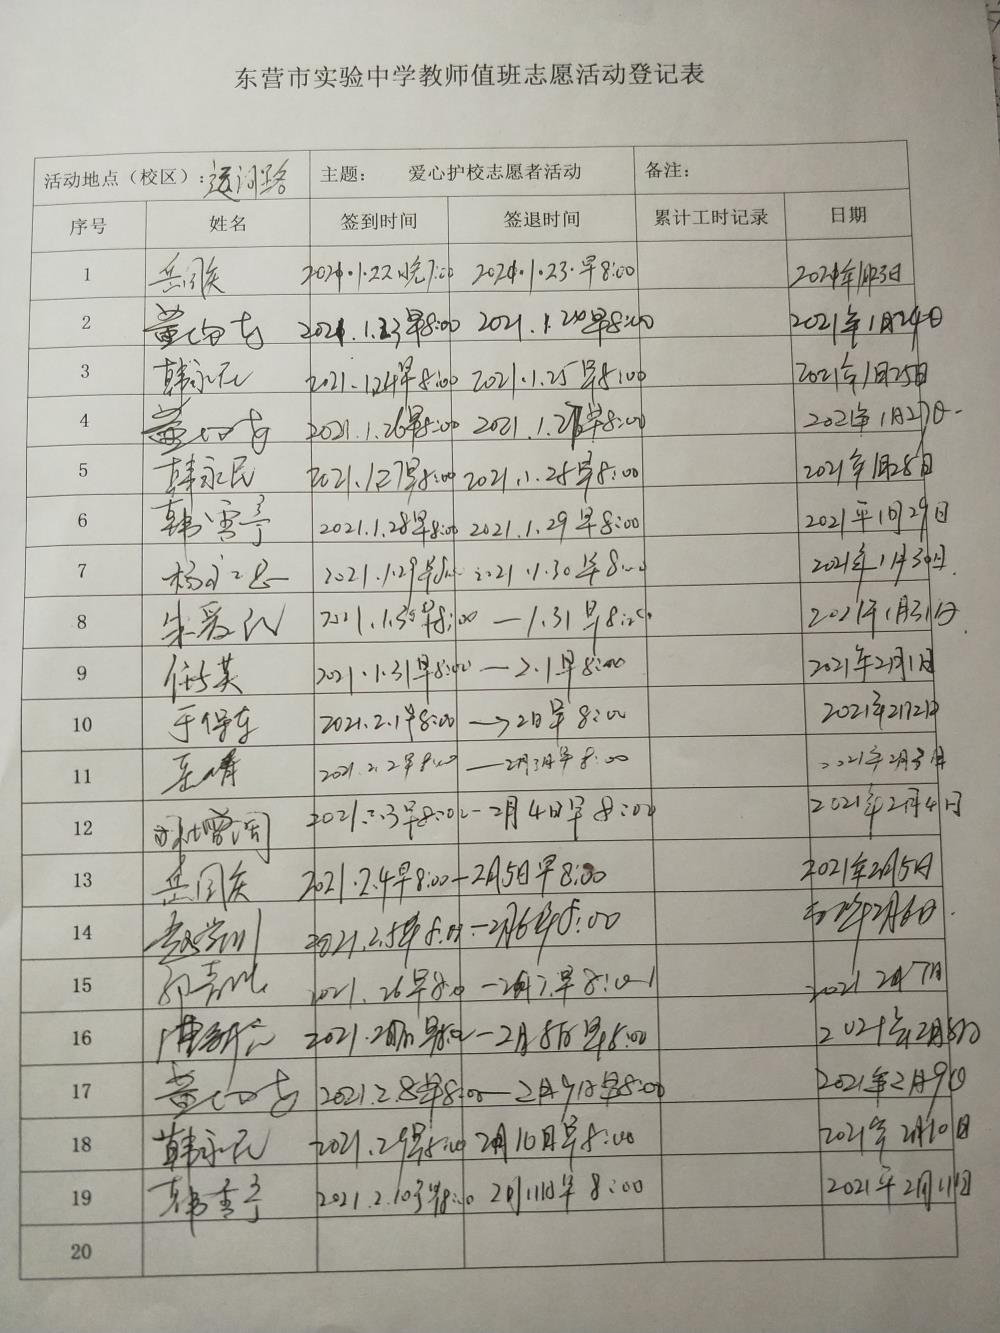 东营市实验中学教师值班志愿活动登记表
活动地点（校区）：运河路 主题： 爱心护校志愿者活动 备注：
序号 姓名 签到时间 签退时间 累计工时记录 日期
1 岳国庆 2021.1.22晚7:00 2021.1.23.早8:00 2021年1月23日
2 2021.1.23早8:00 2021.1.24早8:00 2021年1月24日
3 韩永民 2021.1.24早8:00 2021.1.25早8:00 2021年1月25日
4 2021.1.26早8:00 2021.1.27早8:00 2021年1月27日
5 韩永民 2021.1.27早8:00 2021.1.28早8:00 2021年1月28日
6 韩雪亭 2021.1.28早8:00 2021.1.29早8:00 2021年1月29日
7 2021.1.29早8:00 2021.1.30早8:00 2021年1月30日
8 朱爱民 2021.1.30早8:00 — 1.31早8:00 2021年1月31日
9 任英 2021.1.31早8:00 — 2.1早8:00 2021年2月1日
10 于保东 2021.2.1早8:00 → 2日早8:00 2021年2月2日
11 2021.2.2早8:00 — 2月3日早8:00 2021年2月3日
12 2021.2.3早8:00 — 2月4日早8:00 2021年2月4日
13 岳国庆 2021.2.4早8:00 — 2月5日早8:00 2021年2月5日
14 2021.2.5早8:00 — 2月6早8:00 2021年2月6日
15 2021.2.6早8:00 — 2月7早8:00 2021 2月7日
16 2021.2月7日早8:00 — 2月8日早8:00 2021年2月8日
17 2021.2.8早8:00 — 2月9日早8:00 2021年2月9日
18 韩永民 2021.2.9早8:00 2月10日早8:00 2021年2月10日
19 韩雪亭 2021.2.10早8:00 2月11日早8:00 2021年2月11日
20